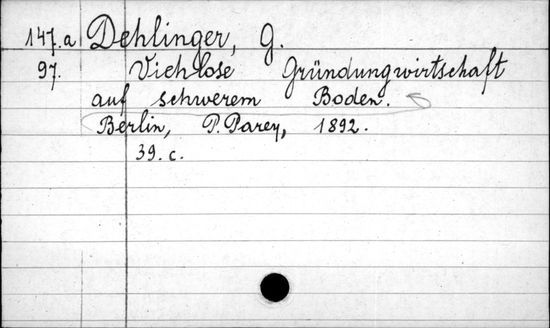 147.a Dehlinger, G.
97. Viehlose Gründungwirtschaft
auf schwerem Boden.
Berlin, P. Parey, 1892.
39. c.